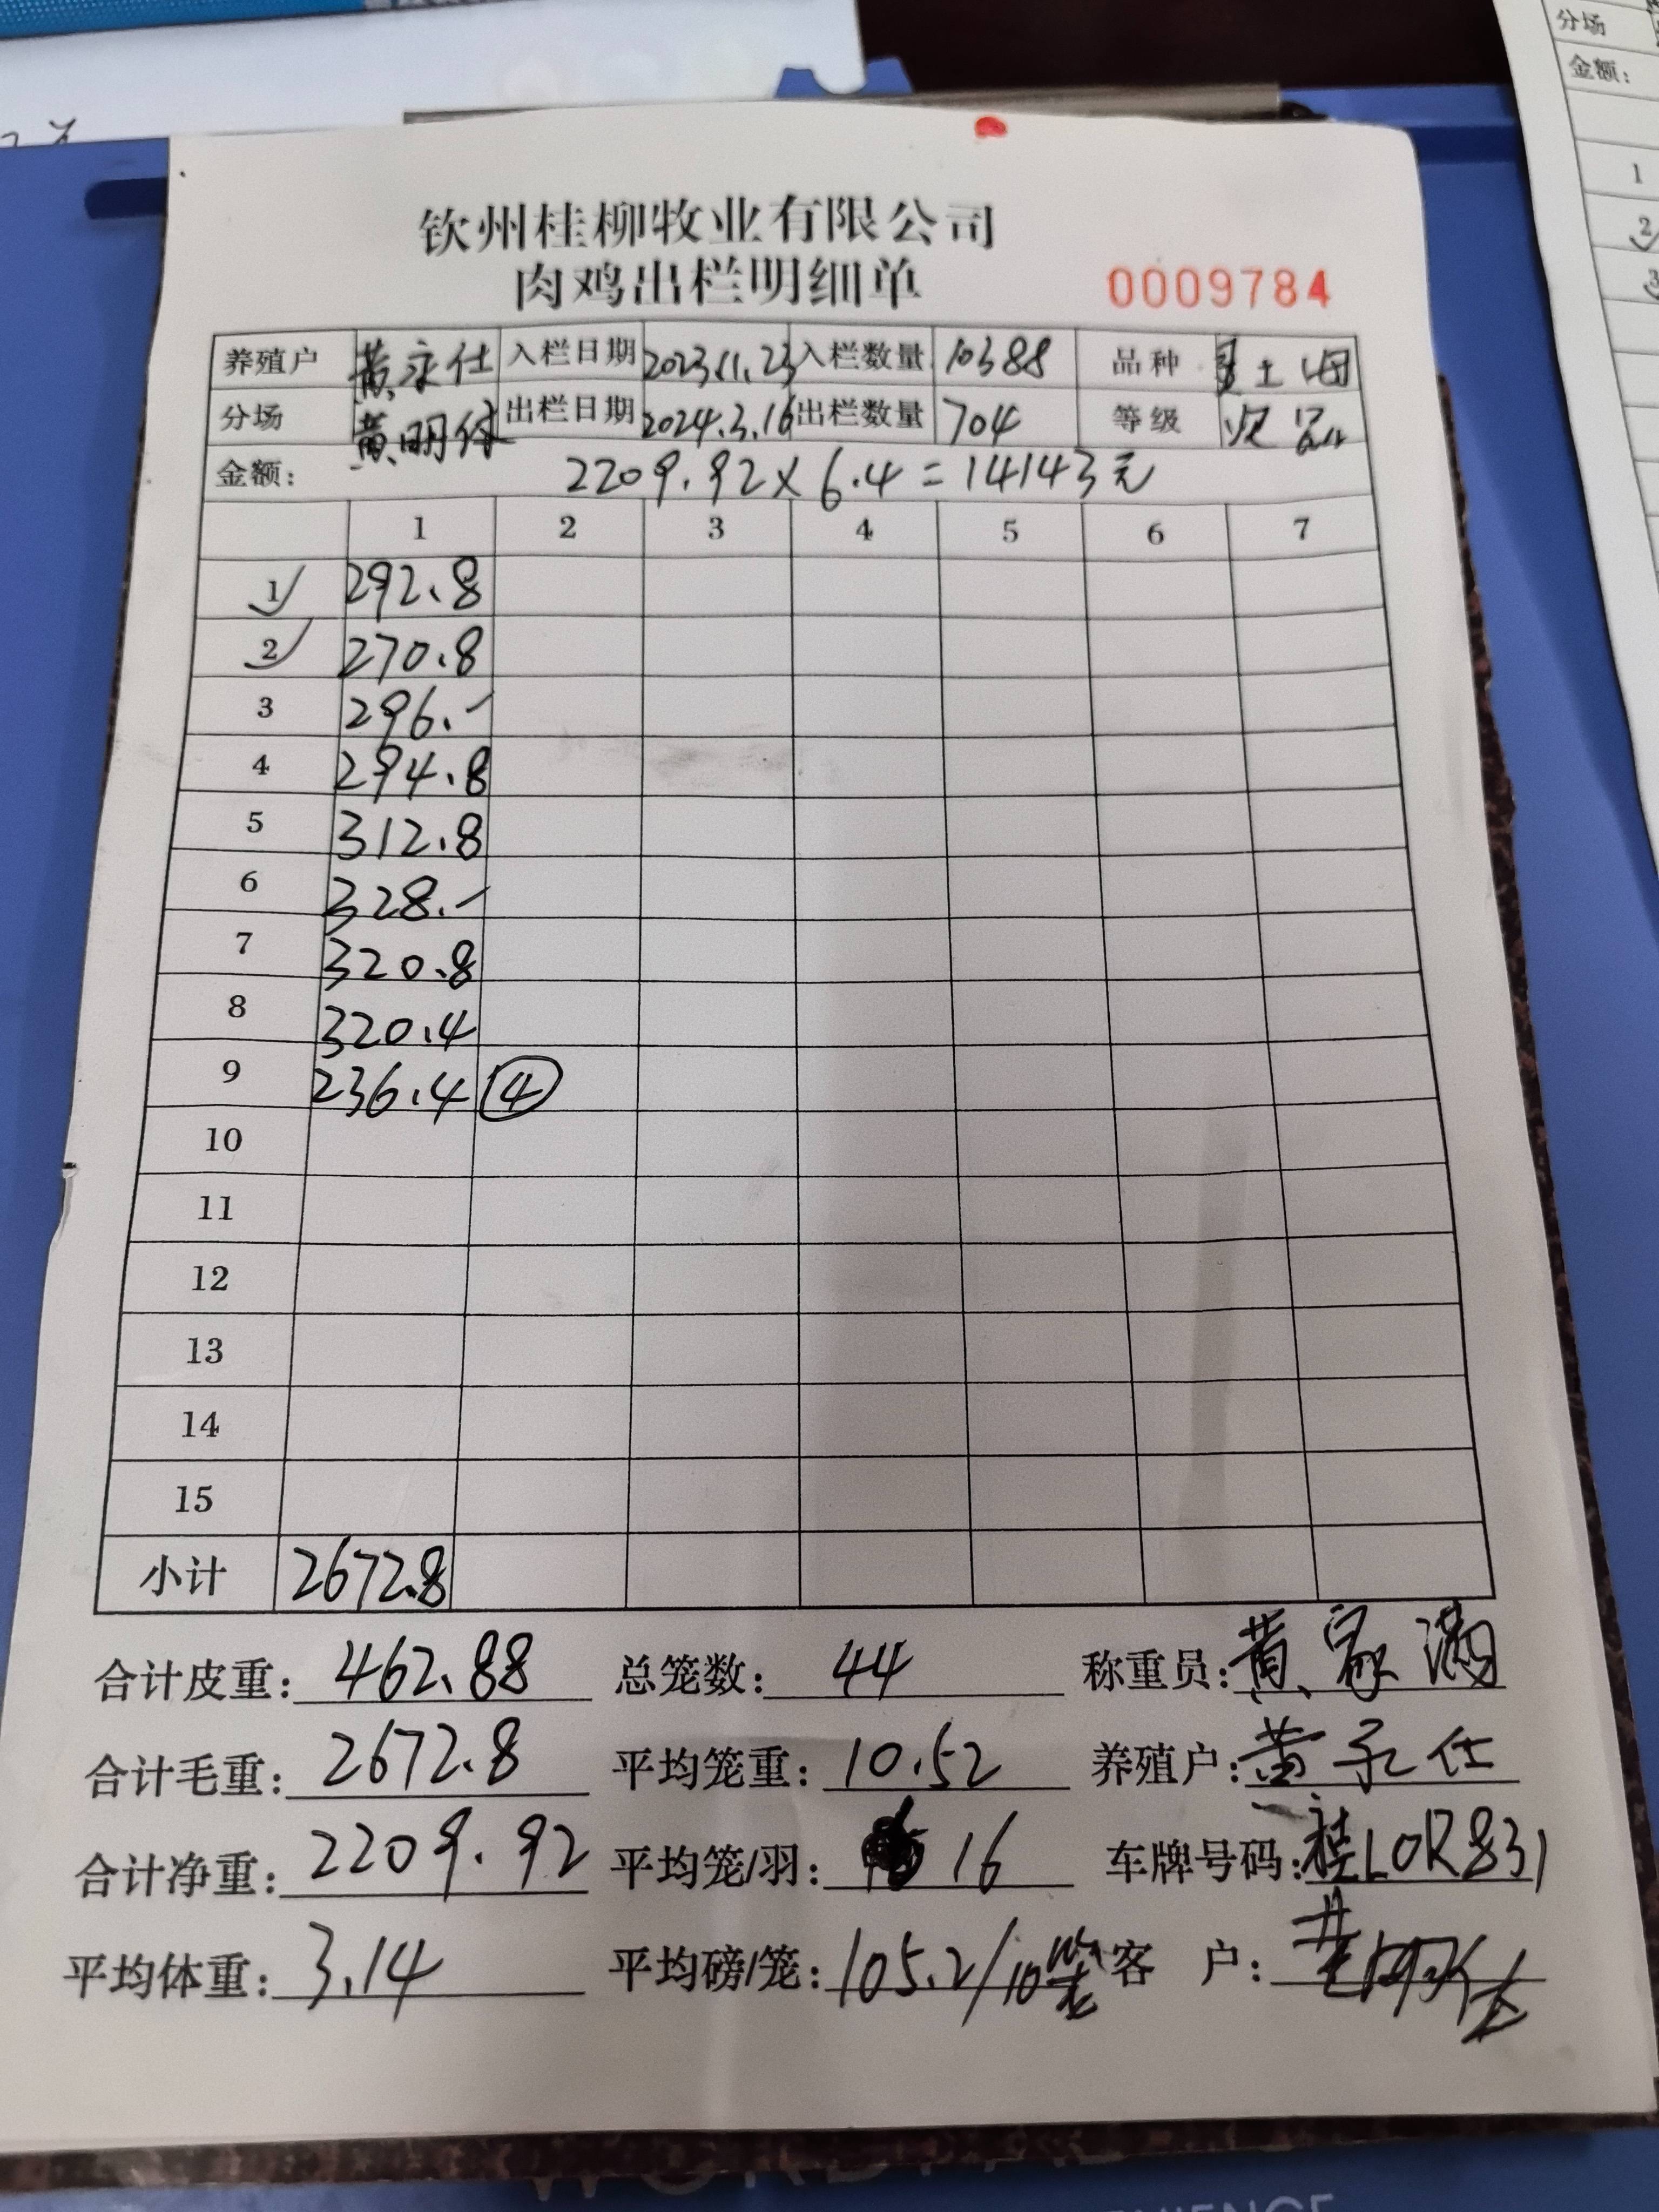 钦州桂柳牧业有限公司
肉鸡出栏明细单 0009784
养殖户 黄永仕 入栏日期 2023.11.23 入栏数量 10388 品种 土
分场 黄明 出栏日期 2024.3.16 出栏数量 704 等级 次品
金额: 2209.92×6.4=14143元
1 2 3 4 5 6 7
1 292.8
2 270.8
3 296.-
4 294.8
5 312.8
6 328.-
7 320.8
8 320.4
9 236.4 ④
10
11
12
13
14
15
小计 2672.8
合计皮重: 462.88 总笼数: 44 称重员: 黄家满
合计毛重: 2672.8 平均笼重: 10.52 养殖户: 黄永仕
合计净重: 2209.92 平均笼/羽: 16 车牌号码: 桂L0R831
平均体重: 3.14 平均磅/笼: 105.2/10笼 客 户:
分场
金额:
1
2
3